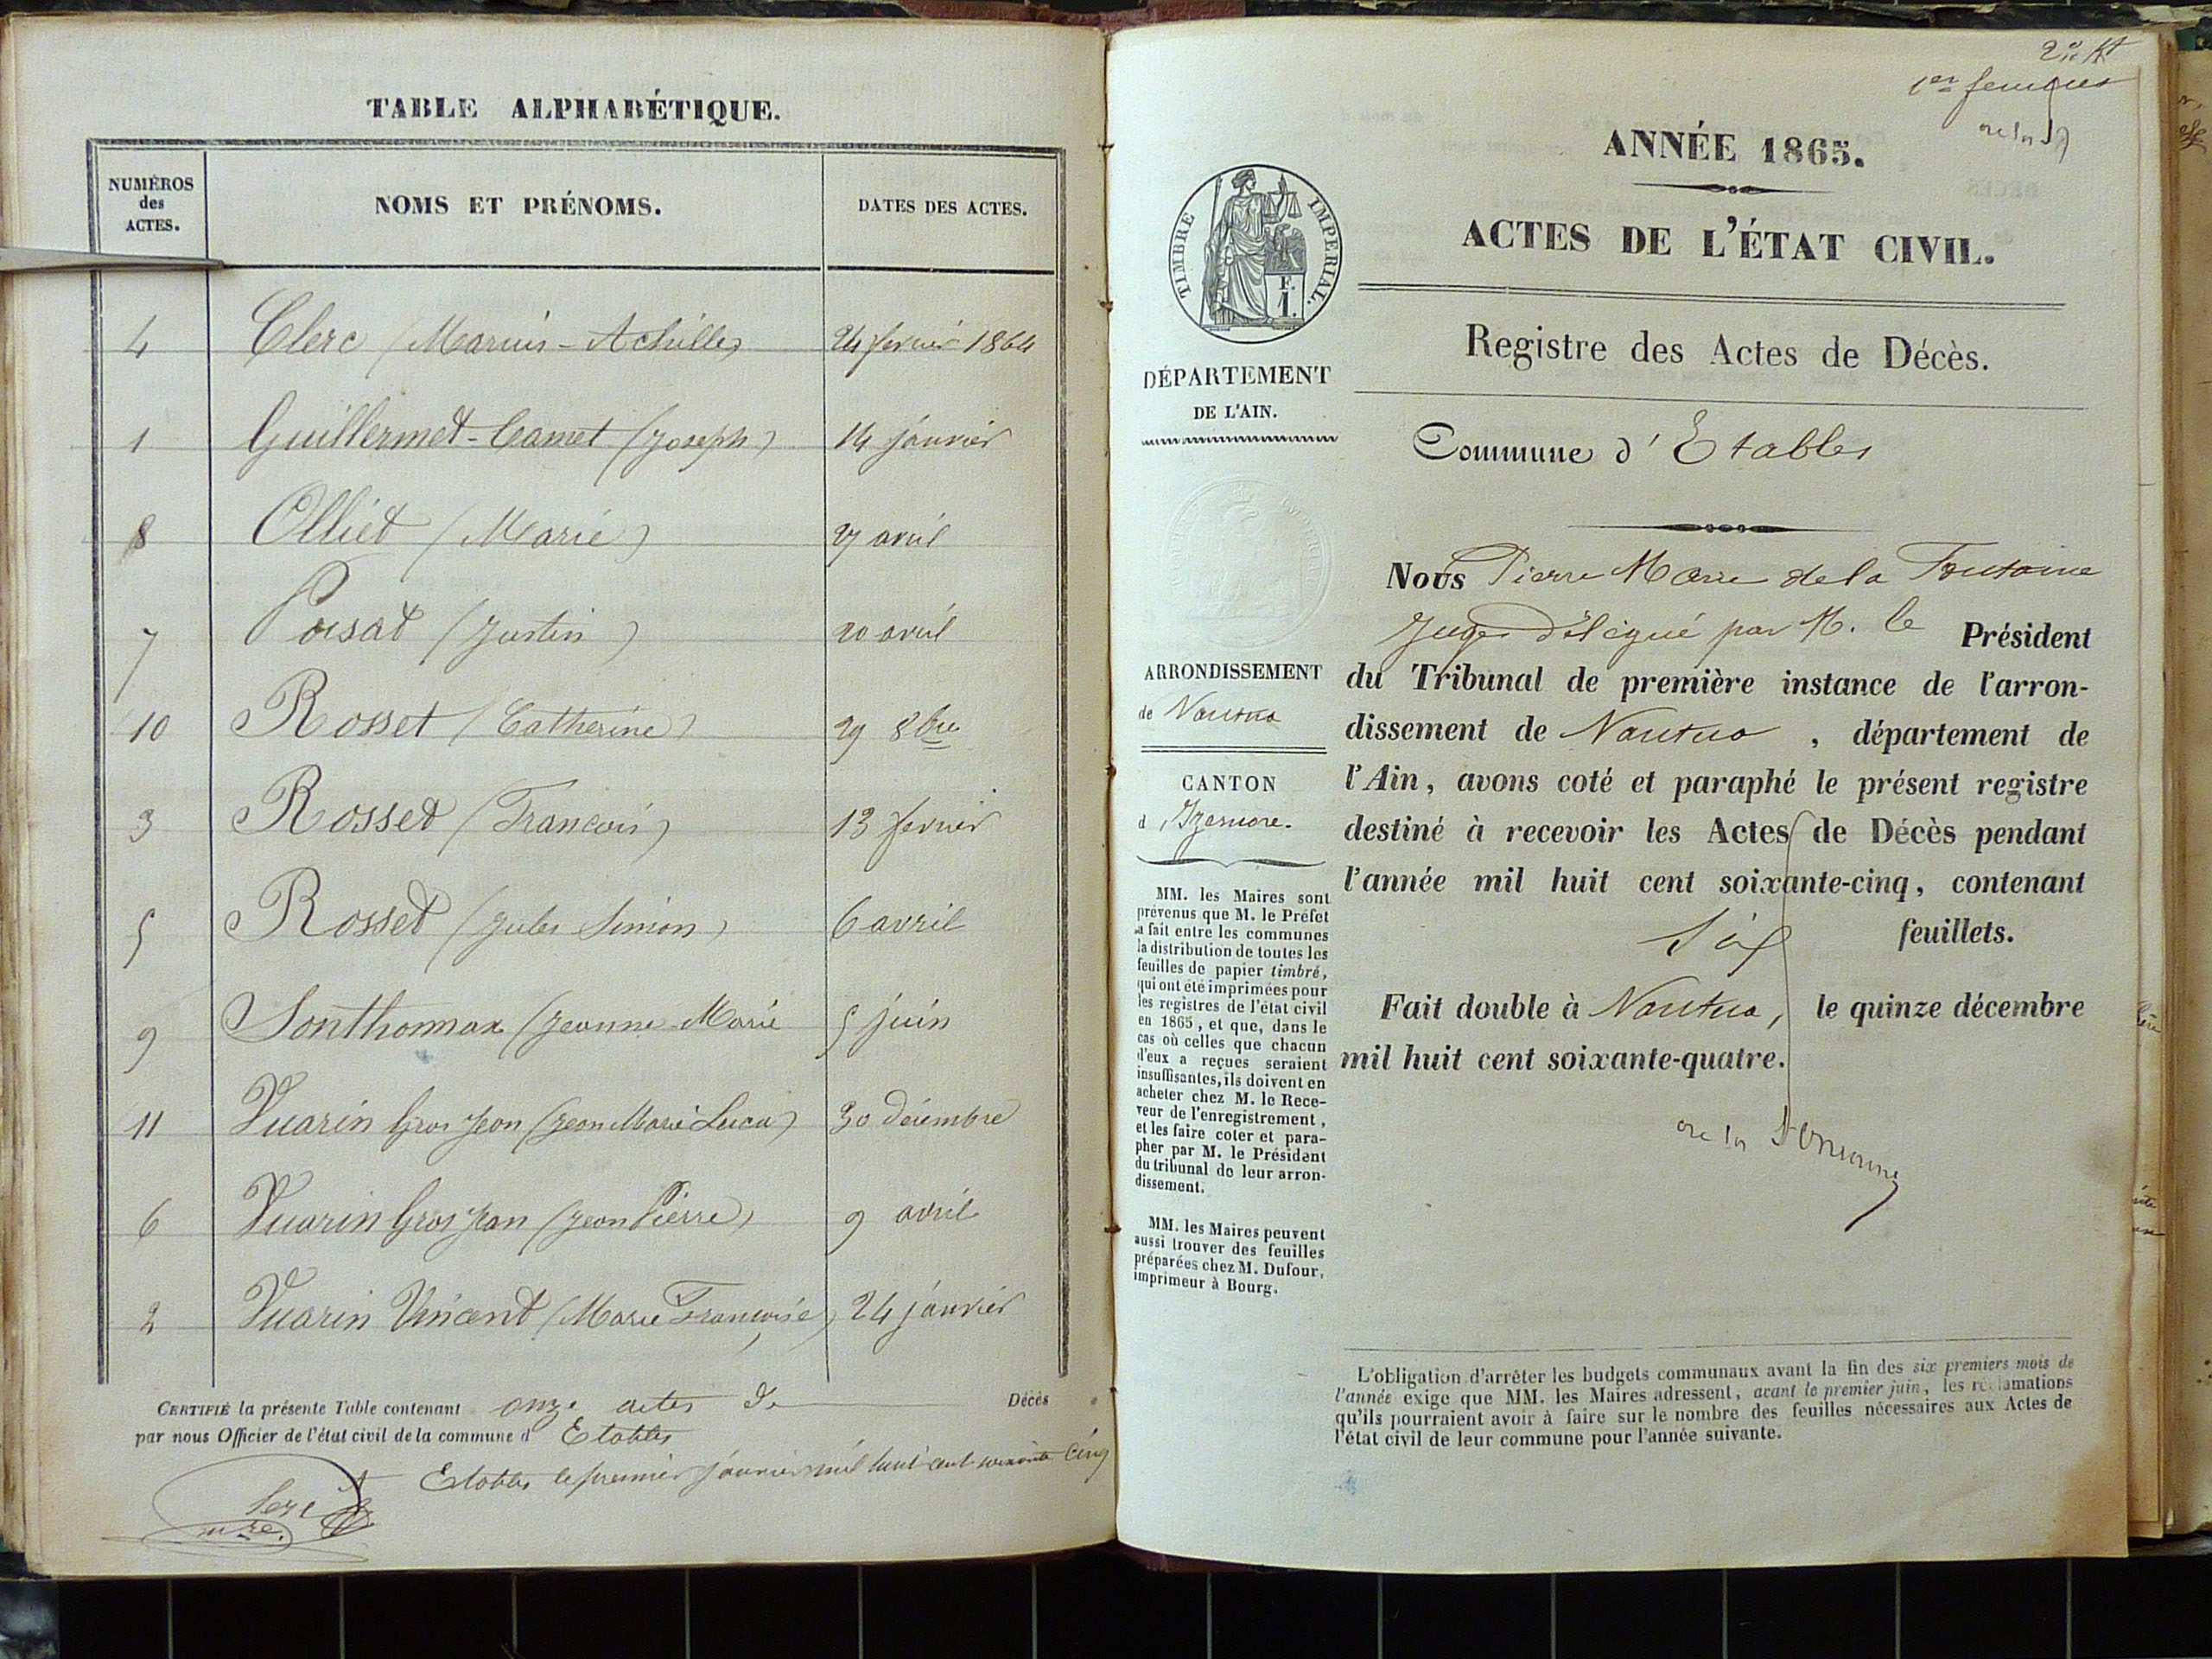 TABLE ALPHABÉTIQUE.
NUMÉROS
des
ACTES.
NOMS ET PRÉNOMS.
DATES DES ACTES.
4 Clerc (Marius-Achille) 24 fevrier 1864
1 Guillermet-Camet (Joseph) 14 janvier
8 Olliet (Marie) 27 avril
7 Poisat (Justin) 20 avril
10 Rosset (Catherine) 29 8bre
3 Rosset (Francois) 13 fevrier
5 Rosset (Jules Simon) 6 avril
9 Sonthonnax (Jeanne Marie 5 juin
11 Vuarin Gros Jean (Jean Marie Lucu) 30 décembre
6 Vuarin Gros Jean (Jean Pierre) 9 avril
2 Vuarin Vincent (Marie Françoise) 24 janvier
CERTIFIÉ la présente Table contenant onze actes de Décès
par nous Officier de l'état civil de la commune d' Etables
Etables le premier janvier mil huit cent soixante cinq
mre.
1er feuillet
ANNÉE 1865.
ACTES DE L'ÉTAT CIVIL.
TIMBRE IMPERIAL.
F.
1.
Registre des Actes de Décès.
DÉPARTEMENT
DE L'AIN.
Commune d'Etables
Nous Pierre Marie de la
Juge délégué par M. le Président
du Tribunal de première instance de l'arron-
dissement de Nantua, département de
l'Ain, avons coté et paraphé le présent registre
destiné à recevoir les Actes de Décès pendant
l'année mil huit cent soixante-cinq, contenant
Six feuillets.
Fait double à Nantua, le quinze décembre
mil huit cent soixante-quatre.
ARRONDISSEMENT
de Nantua
CANTON
d'Izernore.
MM. les Maires sont
prévenus que M. le Préfet
a fait entre les communes
la distribution de toutes les
feuilles de papier timbré,
qui ont été imprimées pour
les registres de l'état civil
en 1865, et que, dans le
cas où celles que chacun
d'eux a reçues seraient
insuffisantes, ils doivent en
acheter chez M. le Rece-
veur de l'enregistrement,
et les faire coter et para-
pher par M. le Président
du tribunal de leur arron-
dissement.
MM. les Maires peuvent
aussi trouver des feuilles
préparées chez M. Dufour,
imprimeur à Bourg.
L'obligation d'arrêter les budgets communaux avant la fin des six premiers mois de
l'année exige que MM. les Maires adressent, avant le premier juin, les réclamations
qu'ils pourraient avoir à faire sur le nombre des feuilles nécessaires aux Actes de
l'état civil de leur commune pour l'année suivante.